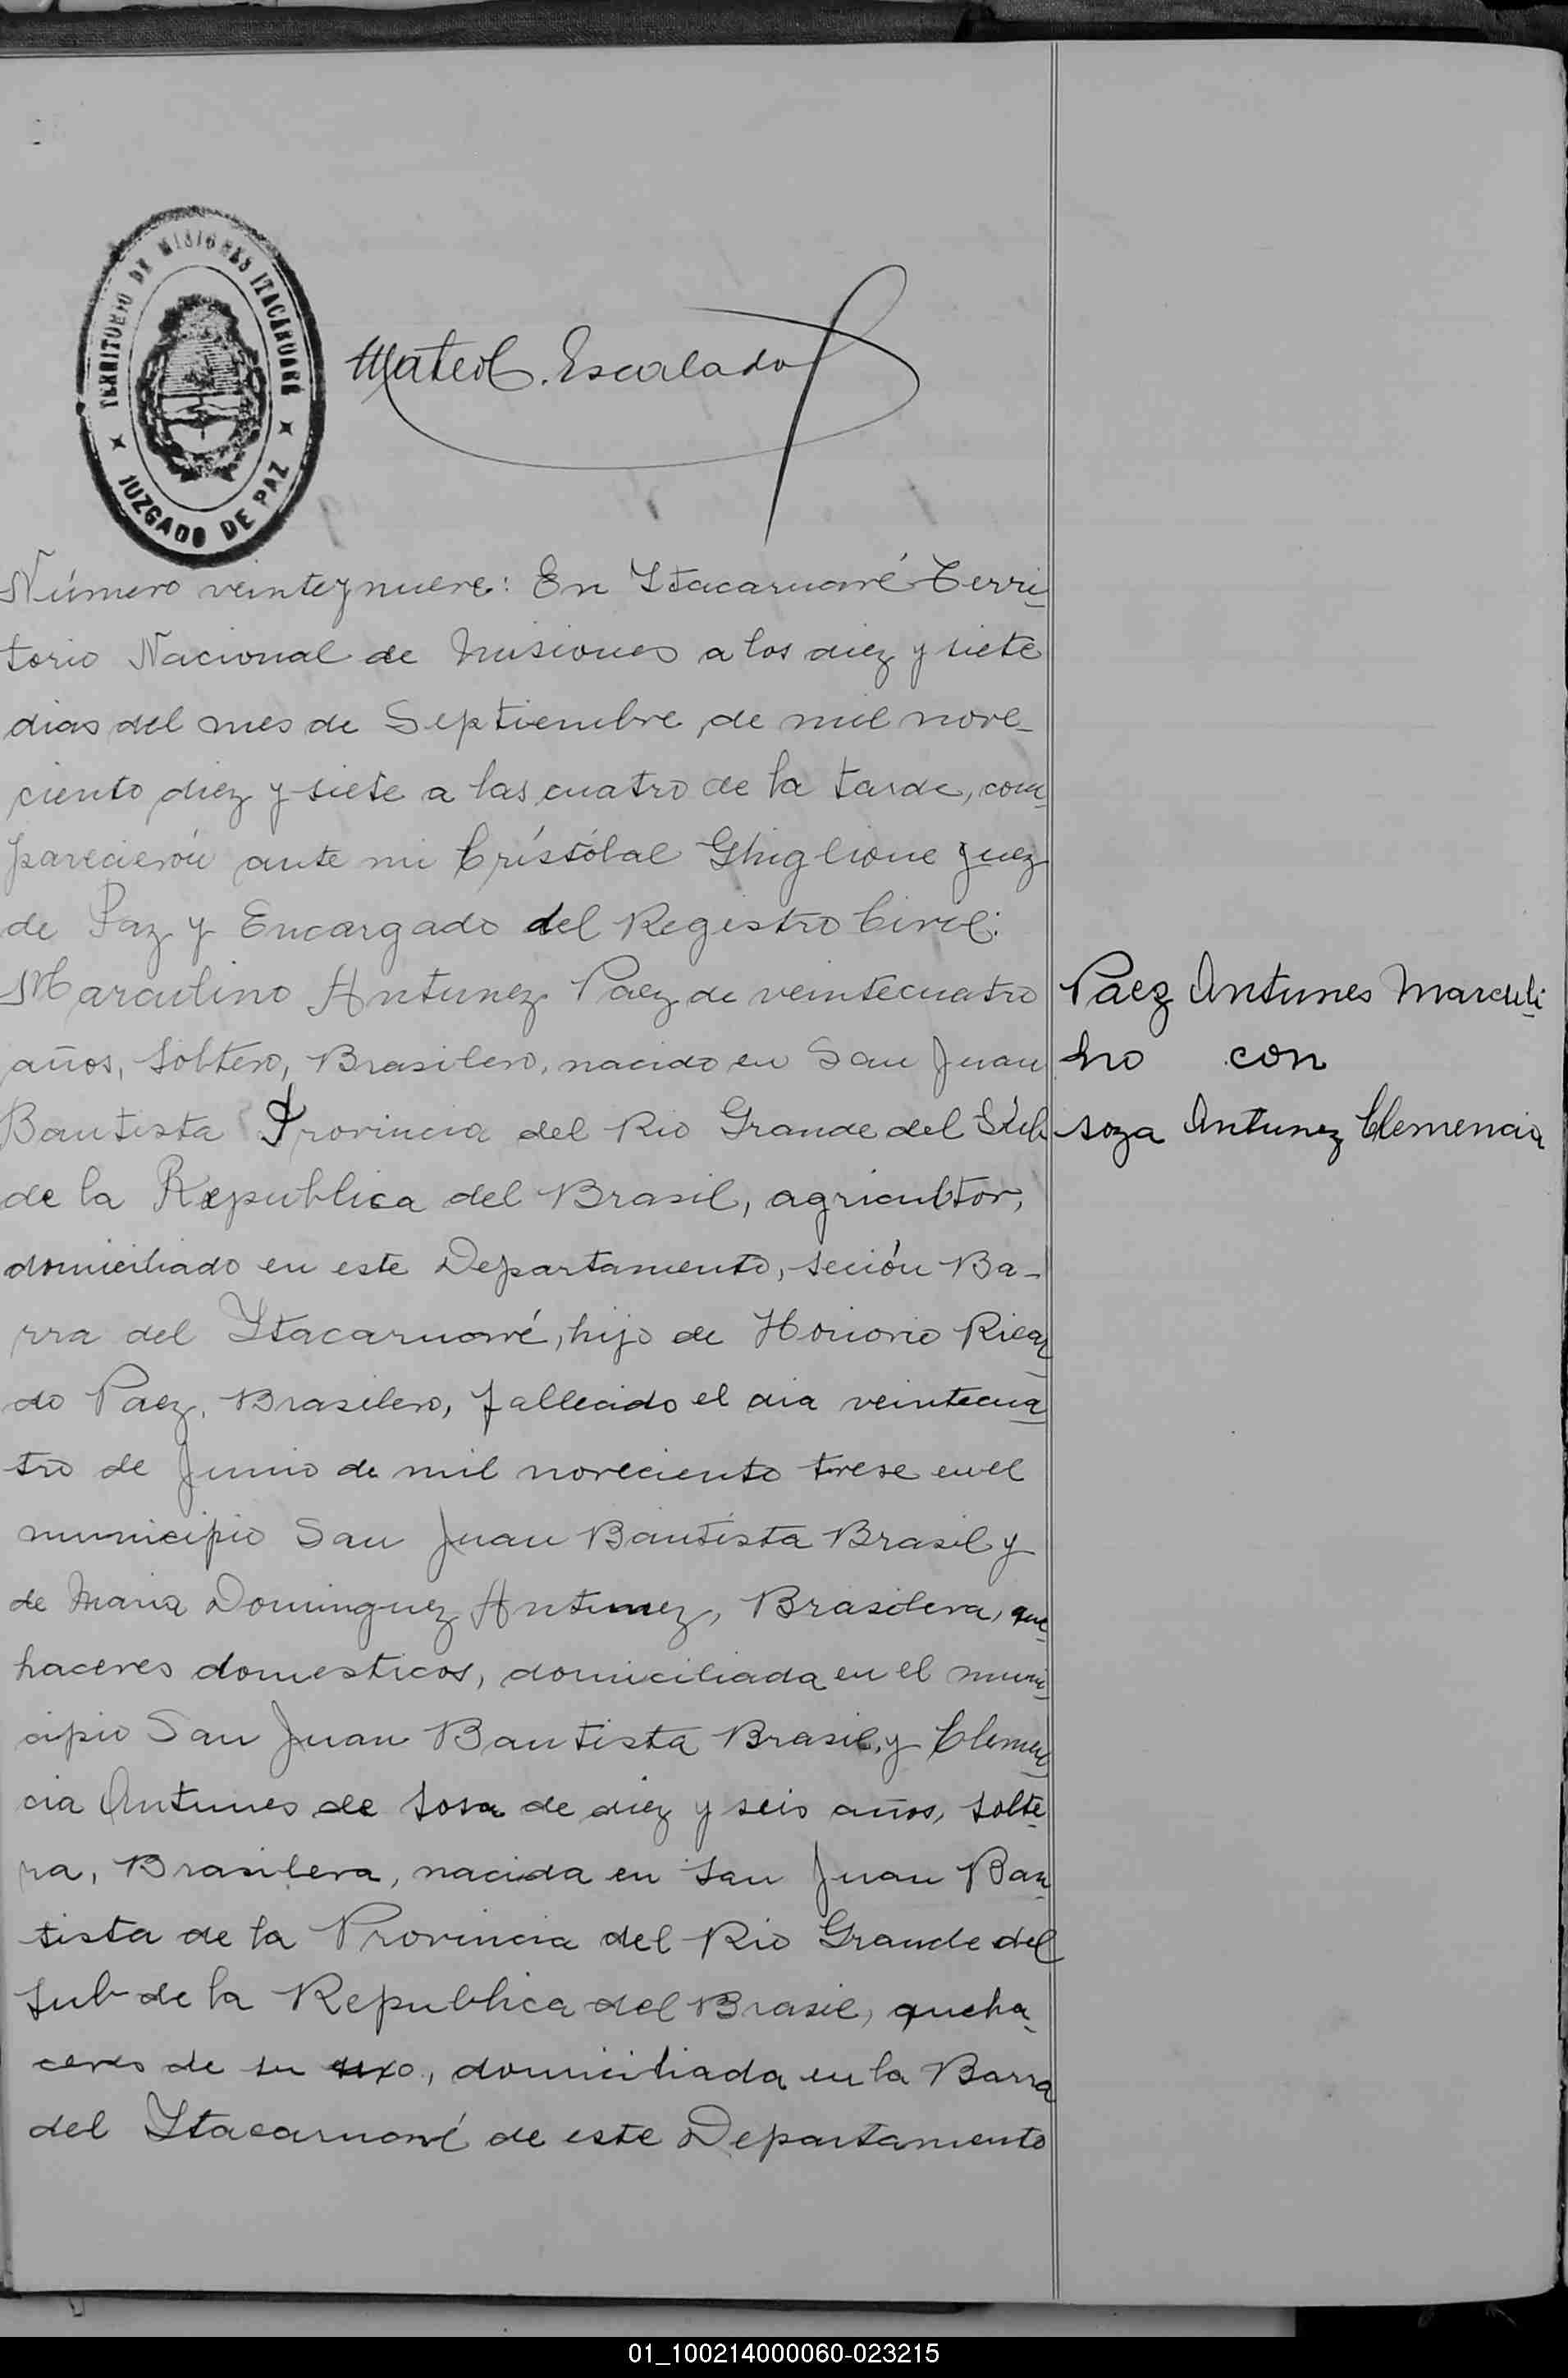 TERRITORIO DE MISIONES ITACARUARÉ
JUZGADO DE PAZ
Mateo Escalada
Número veinteynueve: En Ytacaruaré Terri-
torio Nacional de Misiones a los diez y siete
dias del mes de Septiembre de mil nove-
ciento diez y siete a las cuatro de la tarde, com-
parecierón ante mi Crístóbal Ghiglione Juez
de Paz y Encargado del Registro Civil:
Marculino Antunez Paez de veintecuatro
años, soltero, Brasilero, nacido en San Juan
Bautista Provincia del Rio Grande del Sub
de la Republica del Brasil, agricultor,
domiciliado en este Departamento, seción Ba-
rra del Ytacaruaré, hijo de Honorio Ricar-
do Paez, Brasilero, fallecido el dia veintecua-
tro de Junio de mil noveciento trese en el
municipio San Juan Bautista Brasil y
de Maria Dominguez Antunez, Brasilera, que-
haceres domesticos, domiciliada en el muni-
cipio San Juan Bautista Brasil, y Clemen-
cia Antunes de Sosa de diez y seis años, solte-
ra, Brasilera, nacida en San Juan Bau-
tista de la Provincia del Rio Grande del
Sub de la Republica del Brasil, queha-
ceres de su sexo, domiciliada en la Barra
del Ytacaruaré de este Departamento
Paez Antunes Marculi-
no con
Soza Antunez Clemencia
01_100214000060-023215